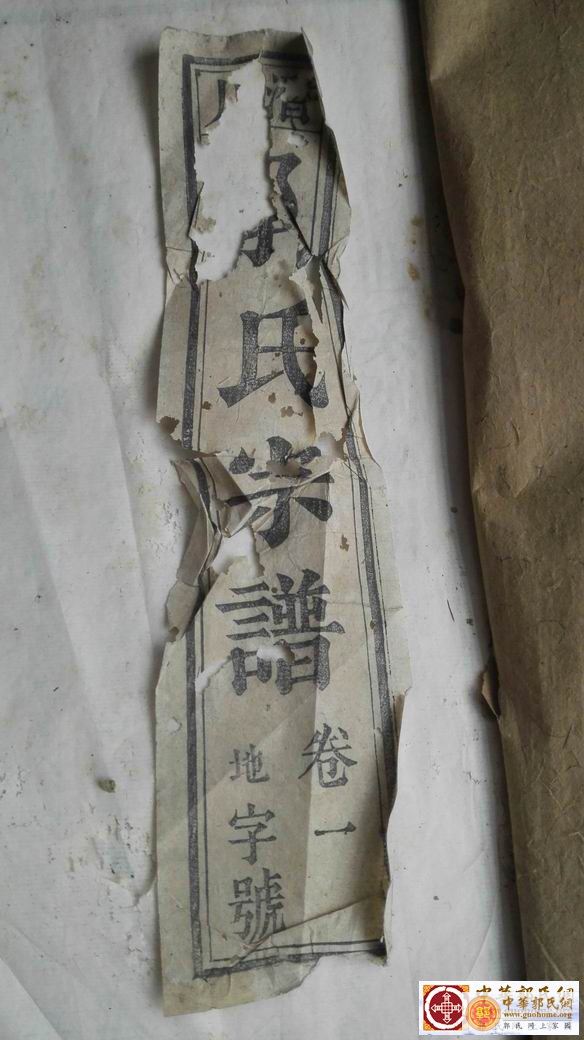 氏宗譜
卷一
地字號
中華郭氏網
中華郭氏網
www.guohome.org
郭氏網上家園